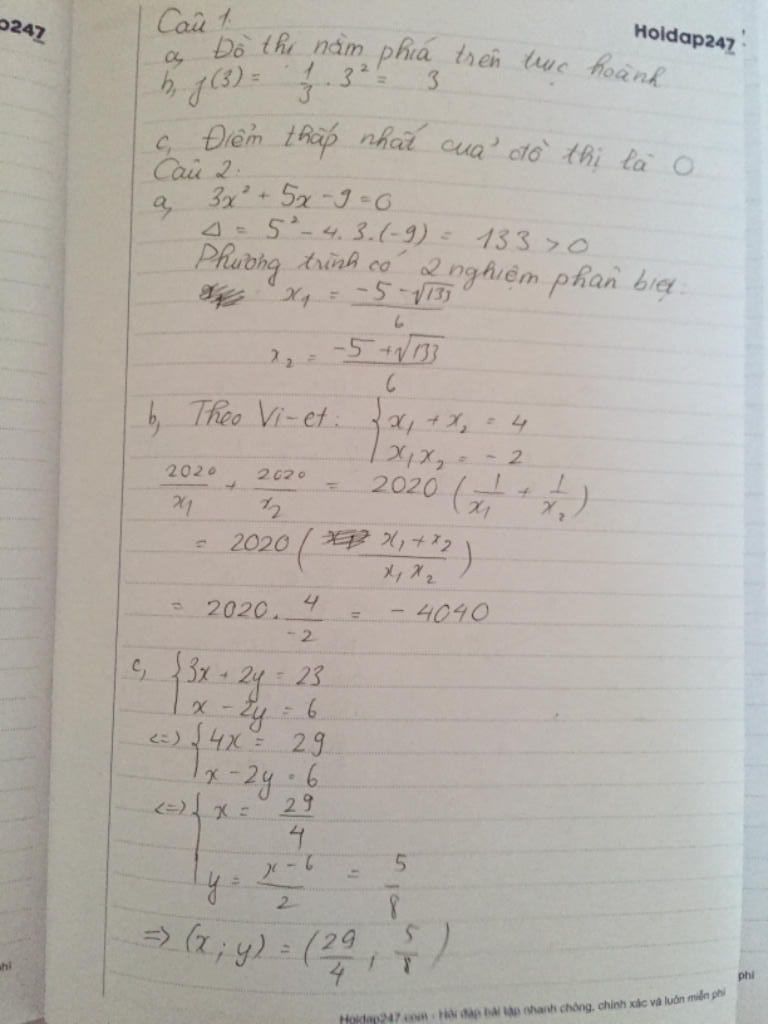 247
Hoidap247
Câu 1.
a, Đồ thị nằm phía trên trục hoành
b, f(3) = 1/3 . 3² = 3
c, Điểm thấp nhất của đồ thị là O
Câu 2.
a, 3x² + 5x - 9 = 0
Δ = 5² - 4. 3. (-9) = 133 > 0
Phương trình có 2 nghiệm phân biệt:
x₁ = (-5 - √133)/6
x₂ = (-5 + √133)/6
b, Theo Vi-et: { x₁ + x₂ = 4
x₁x₂ = - 2
2020/x₁ + 2020/x₂ = 2020 (1/x₁ + 1/x₂)
= 2020 ((x₁ + x₂)/(x₁ x₂))
= 2020. 4/-2 = - 4040
c, { 3x + 2y = 23
x - 2y = 6
<=> { 4x = 29
x - 2y = 6
<=> { x = 29/4
y = (x - 6)/2 = 5/8
=> (x ; y) = (29/4 ; 5/8)
phí
phí
Hoidap247.com - Hỏi đáp bài tập nhanh chóng, chính xác và luôn miễn phí